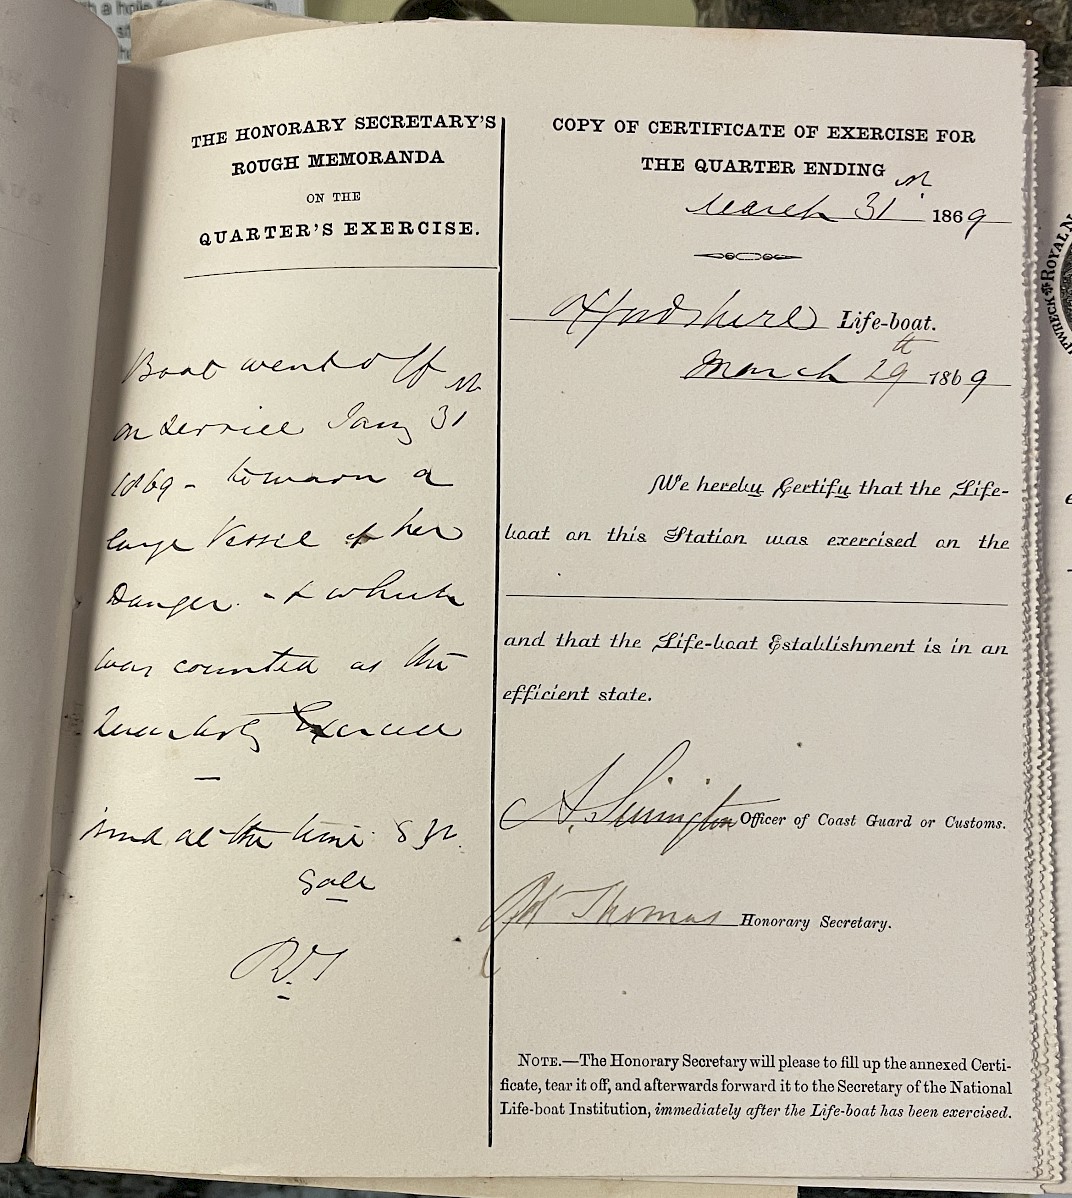 THE HONORARY SECRETARY'S
ROUGH MEMORANDA
ON THE
QUARTER'S EXERCISE.
Boat went off
on service Jany 31st
1869 - to warn a
large Vessel of her
Danger - & which
was counted as the
Quarterly Exercise
Wind at the time S
Gale
R.T
COPY OF CERTIFICATE OF EXERCISE FOR
THE QUARTER ENDING
March 31st 1869
Oxfordshire Life-boat.
March 29th 1869
We hereby Certify that the Life-
boat on this Station was exercised on the
and that the Life-boat Establishment is in an
efficient state.
Officer of Coast Guard or Customs.
Thomas Honorary Secretary.
NOTE.—The Honorary Secretary will please to fill up the annexed Certi-
ficate, tear it off, and afterwards forward it to the Secretary of the National
Life-boat Institution, immediately after the Life-boat has been exercised.
PWRECK ROYAL N